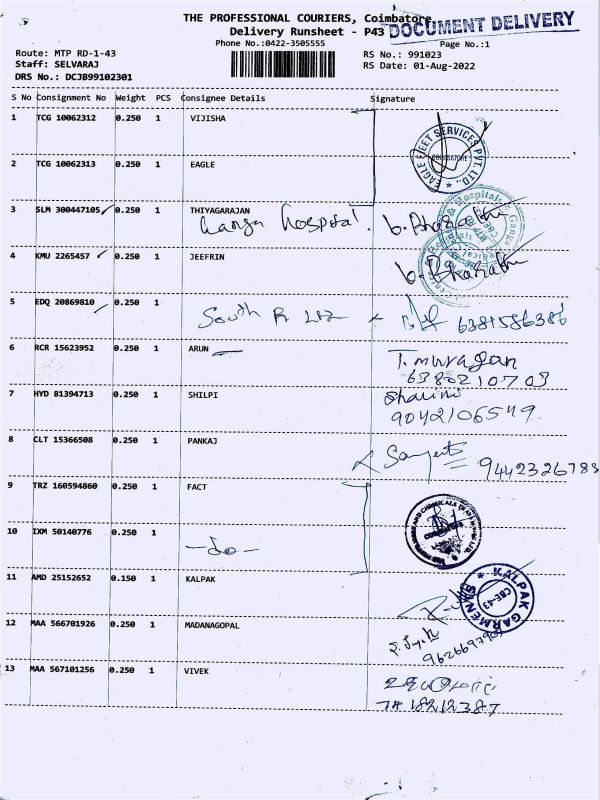 THE PROFESSIONAL COURIERS, Coimbatore
DOCUMENT DELIVERY
Delivery Runsheet - P43
Phone No.:0422-3505555
Page No.:1
Route: MTP RD-1-43
RS No.: 991023
Staff: SELVARAJ
RS Date: 01-Aug-2022
DRS No.: DCJB99102301
S No Consignment No Weight PCS Consignee Details Signature
1 TCG 10062312 0.250 1 VIJISHA
EAGLE FLEET SERVICES PVT. LTD.
COIMBATORE
2 TCG 10062313 0.250 1 EAGLE
3 SLM 300447105 0.250 1 THIYAGARAJAN
Ganga Hospital. b. Bharathi
4 KMU 2265457 0.250 1 JEEFRIN
b. Bharathi
5 EDQ 20869810 0.250 1
South R 6381586386
6 RCR 15623952 0.250 1 ARUN
T. murugan
6380210703
7 HYD 81394713 0.250 1 SHILPI
Shalini
9042106549
8 CLT 15366508 0.250 1 PANKAJ
9442326788
9 TRZ 160594860 0.250 1 FACT
10 IXM 50140776 0.250 1
-do-
11 AMD 25152652 0.150 1 KALPAK
KALPAK GARMENTS
CBE-43
12 MAA 566701926 0.250 1 MADANAGOPAL
13 MAA 567101256 0.250 1 VIVEK
7418212387